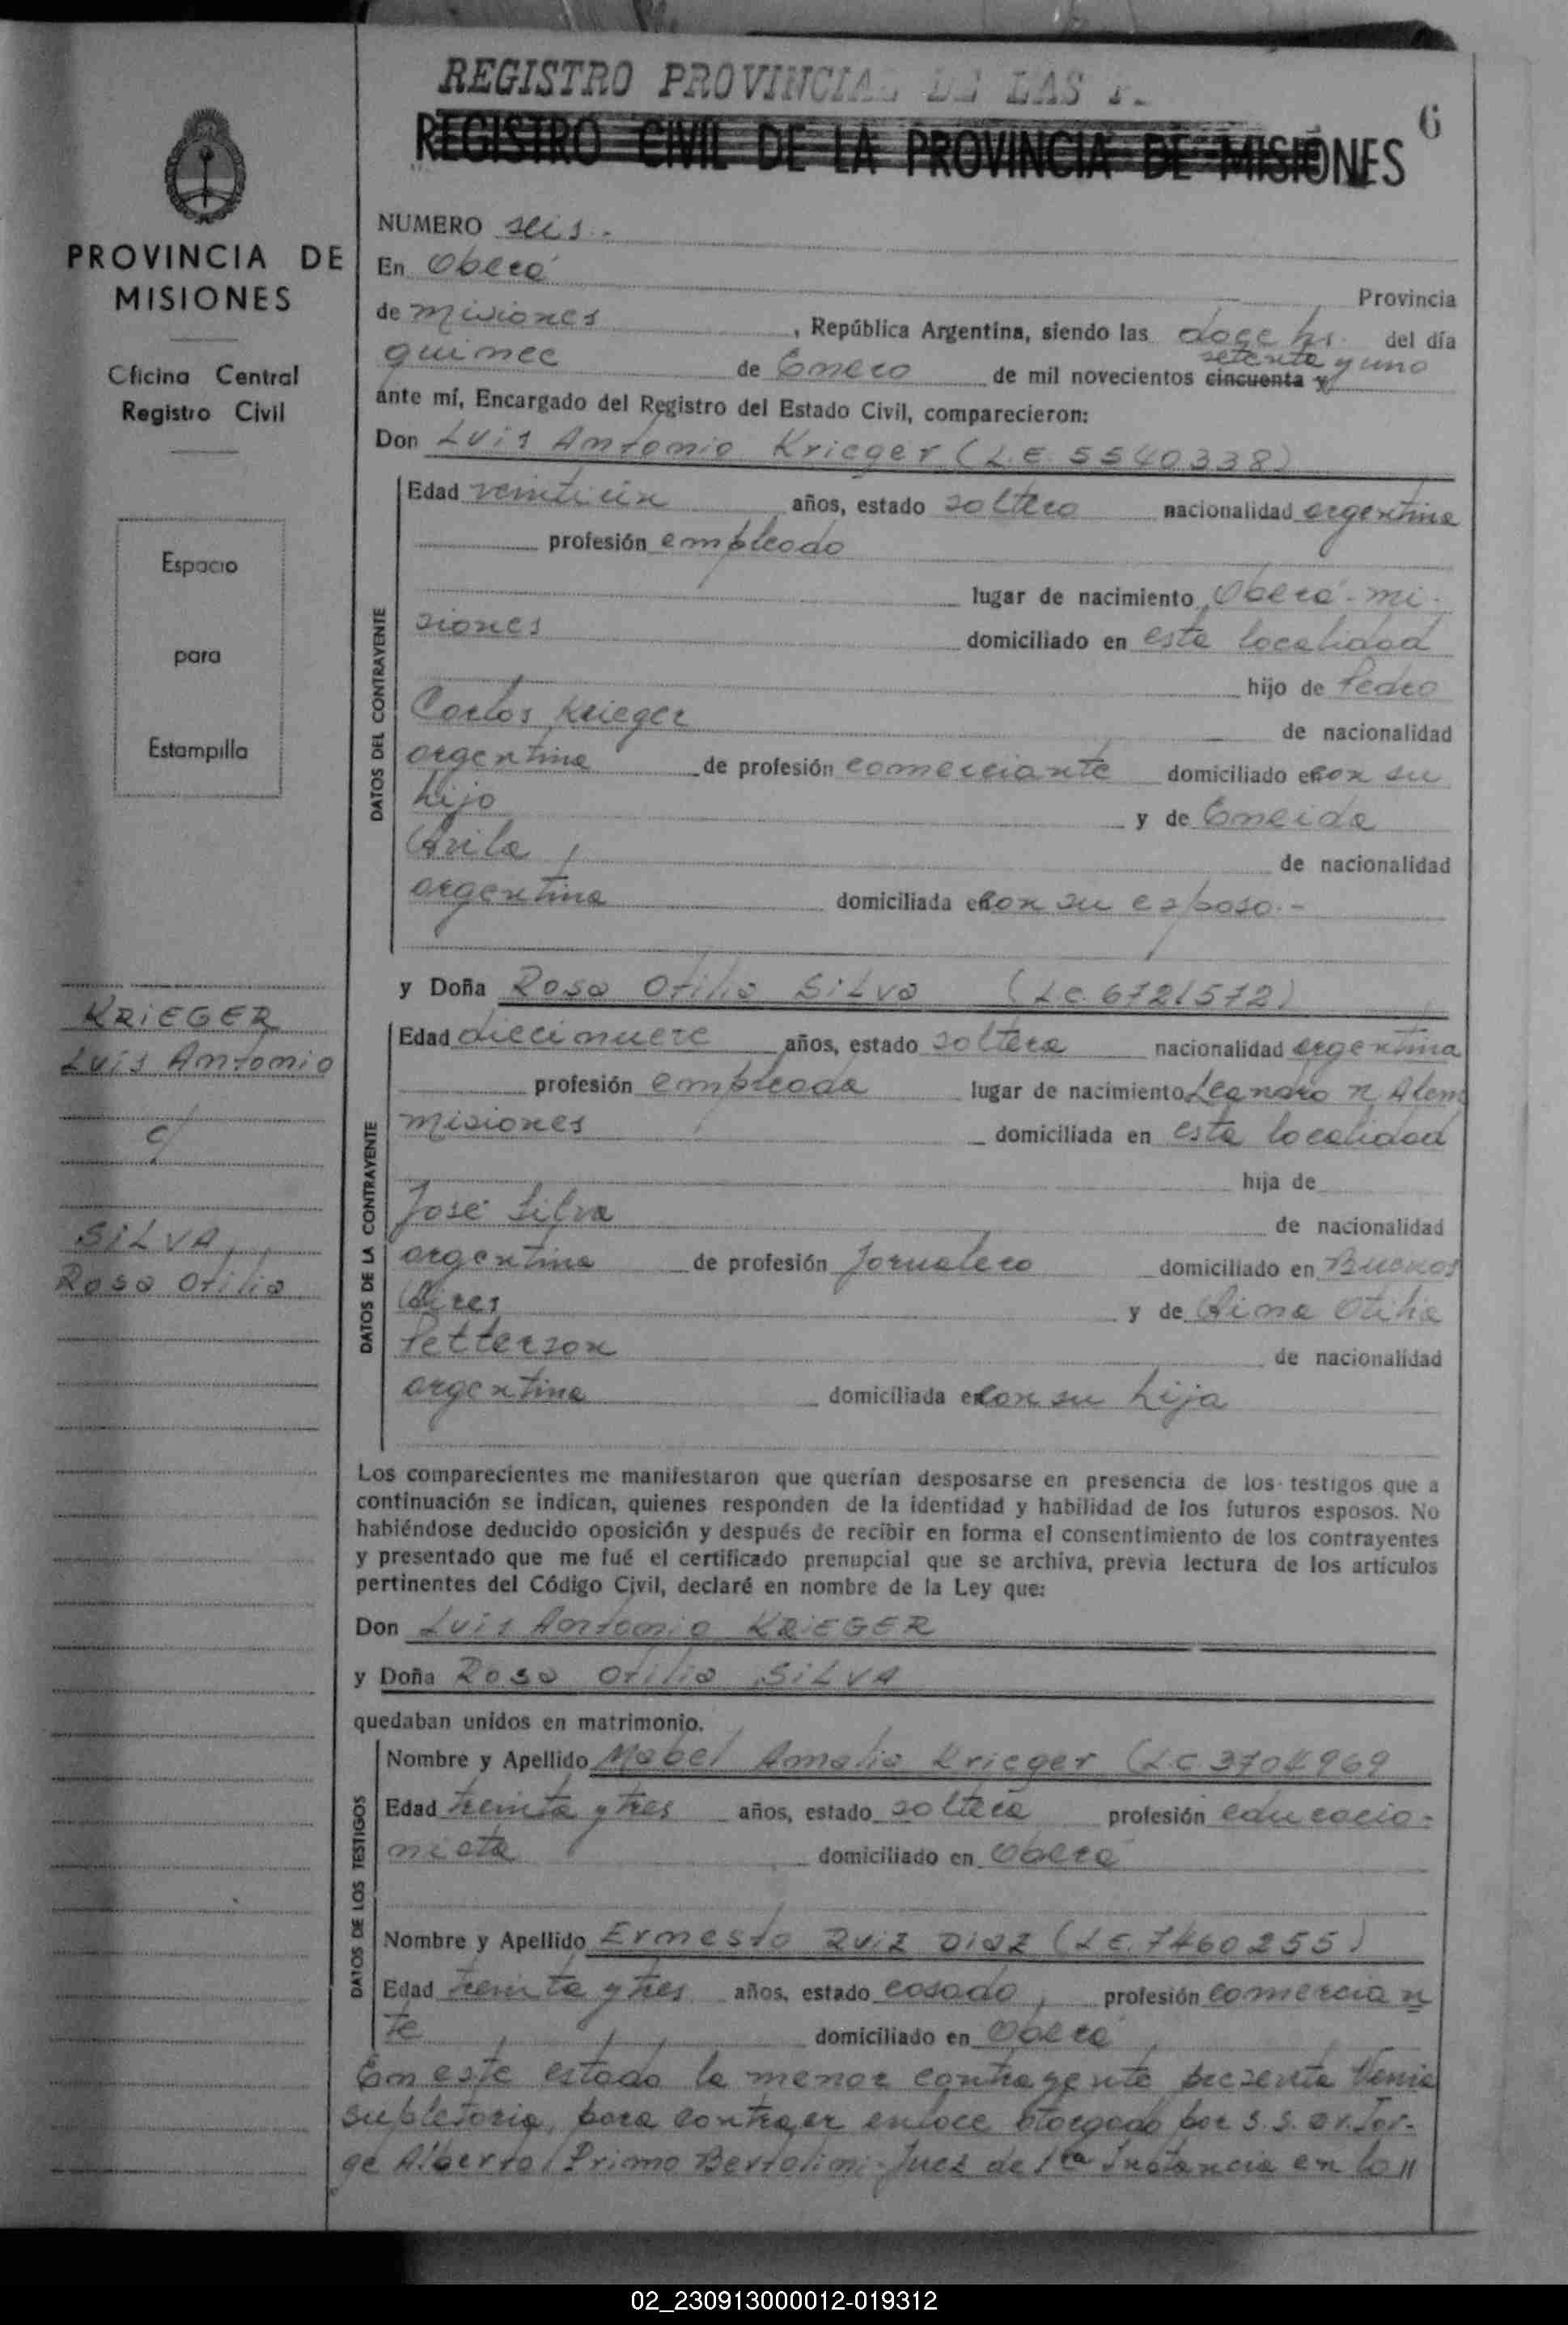 REGISTRO PROVINCIAL DE LAS P.
REGISTRO CIVIL DE LA PROVINCIA DE MISIONES
6
PROVINCIA DE
MISIONES
Oficina Central
Registro Civil
Espacio
para
Estampilla
KRIEGER
Luis Antonio
c/
SILVA
Rosa Otilia
NUMERO seis.-
En Oberá
Provincia
de misiones, República Argentina, siendo las doce hs. del día
setenta y uno
quince de Enero de mil novecientos cincuenta y
ante mí, Encargado del Registro del Estado Civil, comparecieron:
Don Luis Antonio Krieger (L.E. 5540338)
DATOS DEL CONTRAYENTE
Edad veintiún años, estado soltero nacionalidad argentina
profesión empleado
lugar de nacimiento Oberá-mi-
siones domiciliado en esta localidad
hijo de Pedro
Carlos Krieger de nacionalidad
argentina de profesión comerciante domiciliado con su
hijo y de Eneida
Avila de nacionalidad
argentina domiciliada con su esposo.-
y Doña Rosa Otilia Silva (L.C. 6721572)
DATOS DE LA CONTRAYENTE
Edad diecinueve años, estado soltera nacionalidad argentina
profesión empleada lugar de nacimiento Leandro N Alem
misiones domiciliada en esta localidad
hija de
José Silva de nacionalidad
argentina de profesión Jornalero domiciliado en Buenos
Aires y de Otilia
Petterson de nacionalidad
argentina domiciliada con su hija
Los comparecientes me manifestaron que querían desposarse en presencia de los testigos que a
continuación se indican, quienes responden de la identidad y habilidad de los futuros esposos. No
habiéndose deducido oposición y después de recibir en forma el consentimiento de los contrayentes
y presentado que me fué el certificado prenupcial que se archiva, previa lectura de los artículos
pertinentes del Código Civil, declaré en nombre de la Ley que:
Don Luis Antonio KRIEGER
y Doña Rosa Otilia SILVA
quedaban unidos en matrimonio.
DATOS DE LOS TESTIGOS
Nombre y Apellido Mabel Amalia Krieger (LC 3704969
Edad treinta y tres años, estado soltera profesión educacio-
nista domiciliado en Oberá
Nombre y Apellido Ernesto Ruiz Diaz (L.E. 7460255)
Edad treinta y tres años, estado casado, profesión comercian
te domiciliado en Oberá
En este estado la menor contrayente presenta Venia
supletoria, para contraer enlace otorgado por S.S. Dr. Jor-
ge Alberto Primo Bertolini-Juez de 1ra Instancia en lo //
02_230913000012-019312